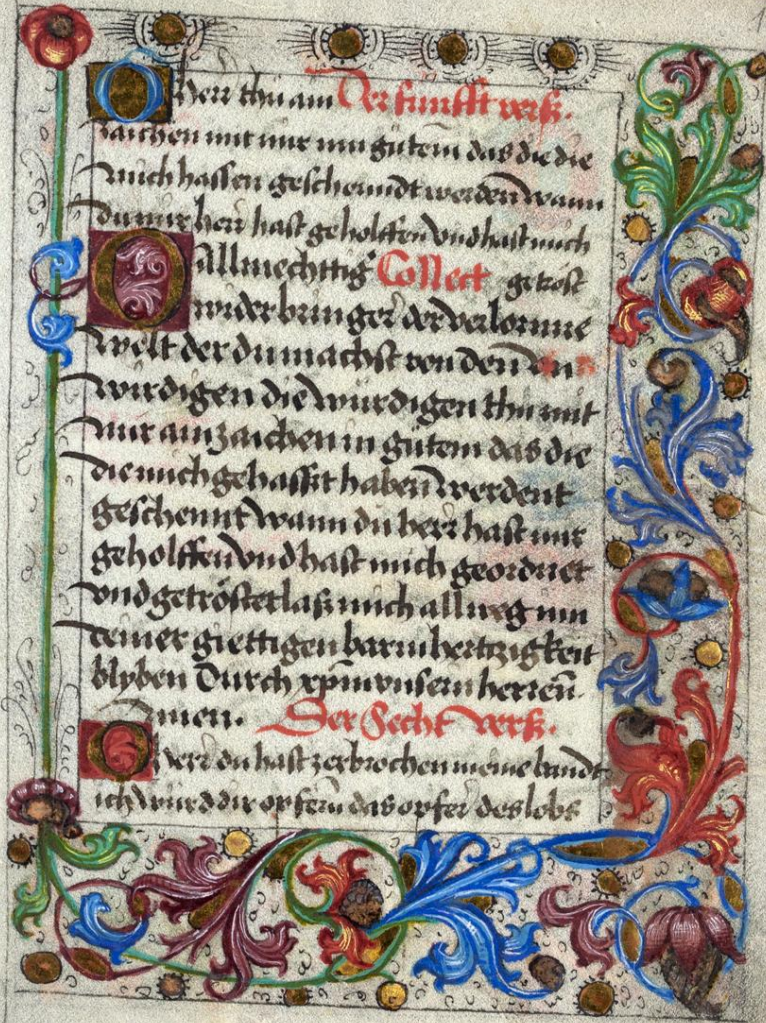 O herr thu ain Der funfft vers.
zaichen mit mir inn gutem das die die
mich hassen geschenndt werden wann
du mir herr hast geholffen vnd hast mich
O allmechttig Collect getröst
widerbringer der verlornne
welt der du machst von den vn
wirdigen die würdigen thu mit
mir ain zaichen in gütem das die
die mich gehasst haben werdent
geschennt wann du herr hast mir
geholffen vnd hast mich geordnet
vnd getröstet lass mich allweg inn
deiner giettigen barmhertzigkeit
blyben Durch xpm vnsern herren
Amen. Der Secht vers.
O herr du hast zerbrochen meine bandt
ich würd dir opfern das opfer des lobs